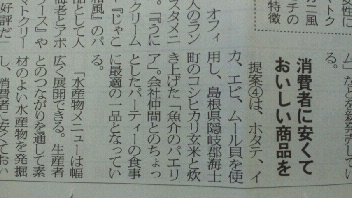 消費者に安くて
おいしい商品を
オフィ
人のラン
スタメニ
。『うに
クリーム
『じゃこ
風』のパ
品として人
老とアボ
ース』や
マトクリー
好評だ
提案④は、ホタテ、イ
カ、エビ、ムール貝を使
用し、島根県隠岐郡海士
町のコシヒカリ玄米と炊
き上げた「魚介のパエリ
ア」。会社仲間とのちょっ
としたパーティーの食事
に最適の一品となってい
「水産物メニューは幅
広く展開できる。生産者
とのつながりを通して素
材のよい水産物を発掘
し、消費者に安くておい